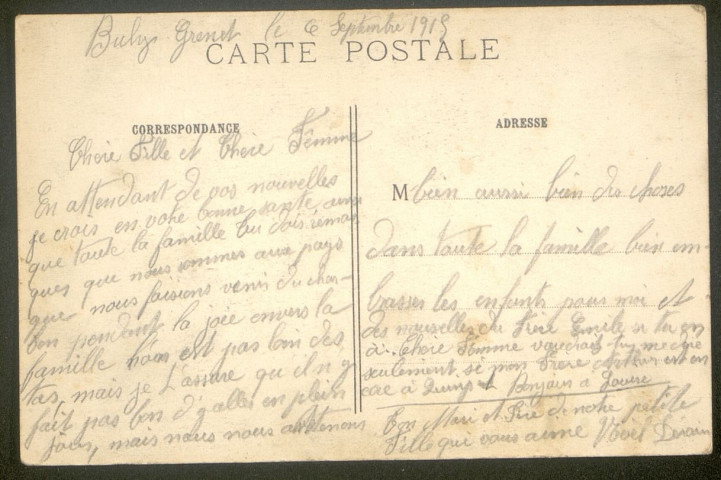 Bully Grenet le 6 Septembre 1915
CARTE POSTALE
CORRESPONDANCE
Chere Fille et Chere Femme
En attendant de vos nouvelles
je crois en votre bonne santé ainsi
que toute la famille tu dois remar
ques que nous sommes aux pays
que nous faisions venir du char-
bon pendant la joie envers la
famille on est pas loin des
tas, mais je t'assure qu'il n'y
fait pas bon d'y aller en plein
jour, mais nous nous
ADRESSE
M bien aussi bien des choses
dans toute la famille bien em-
brasser les enfants pour moi et
des nouvelles du Frere Emile si tu en
à. Chere Femme
seulement si mon Frere Arthur est en
core à et Benjamin a
Ton Mari et Pere de notre petite
Fille qui vous aime